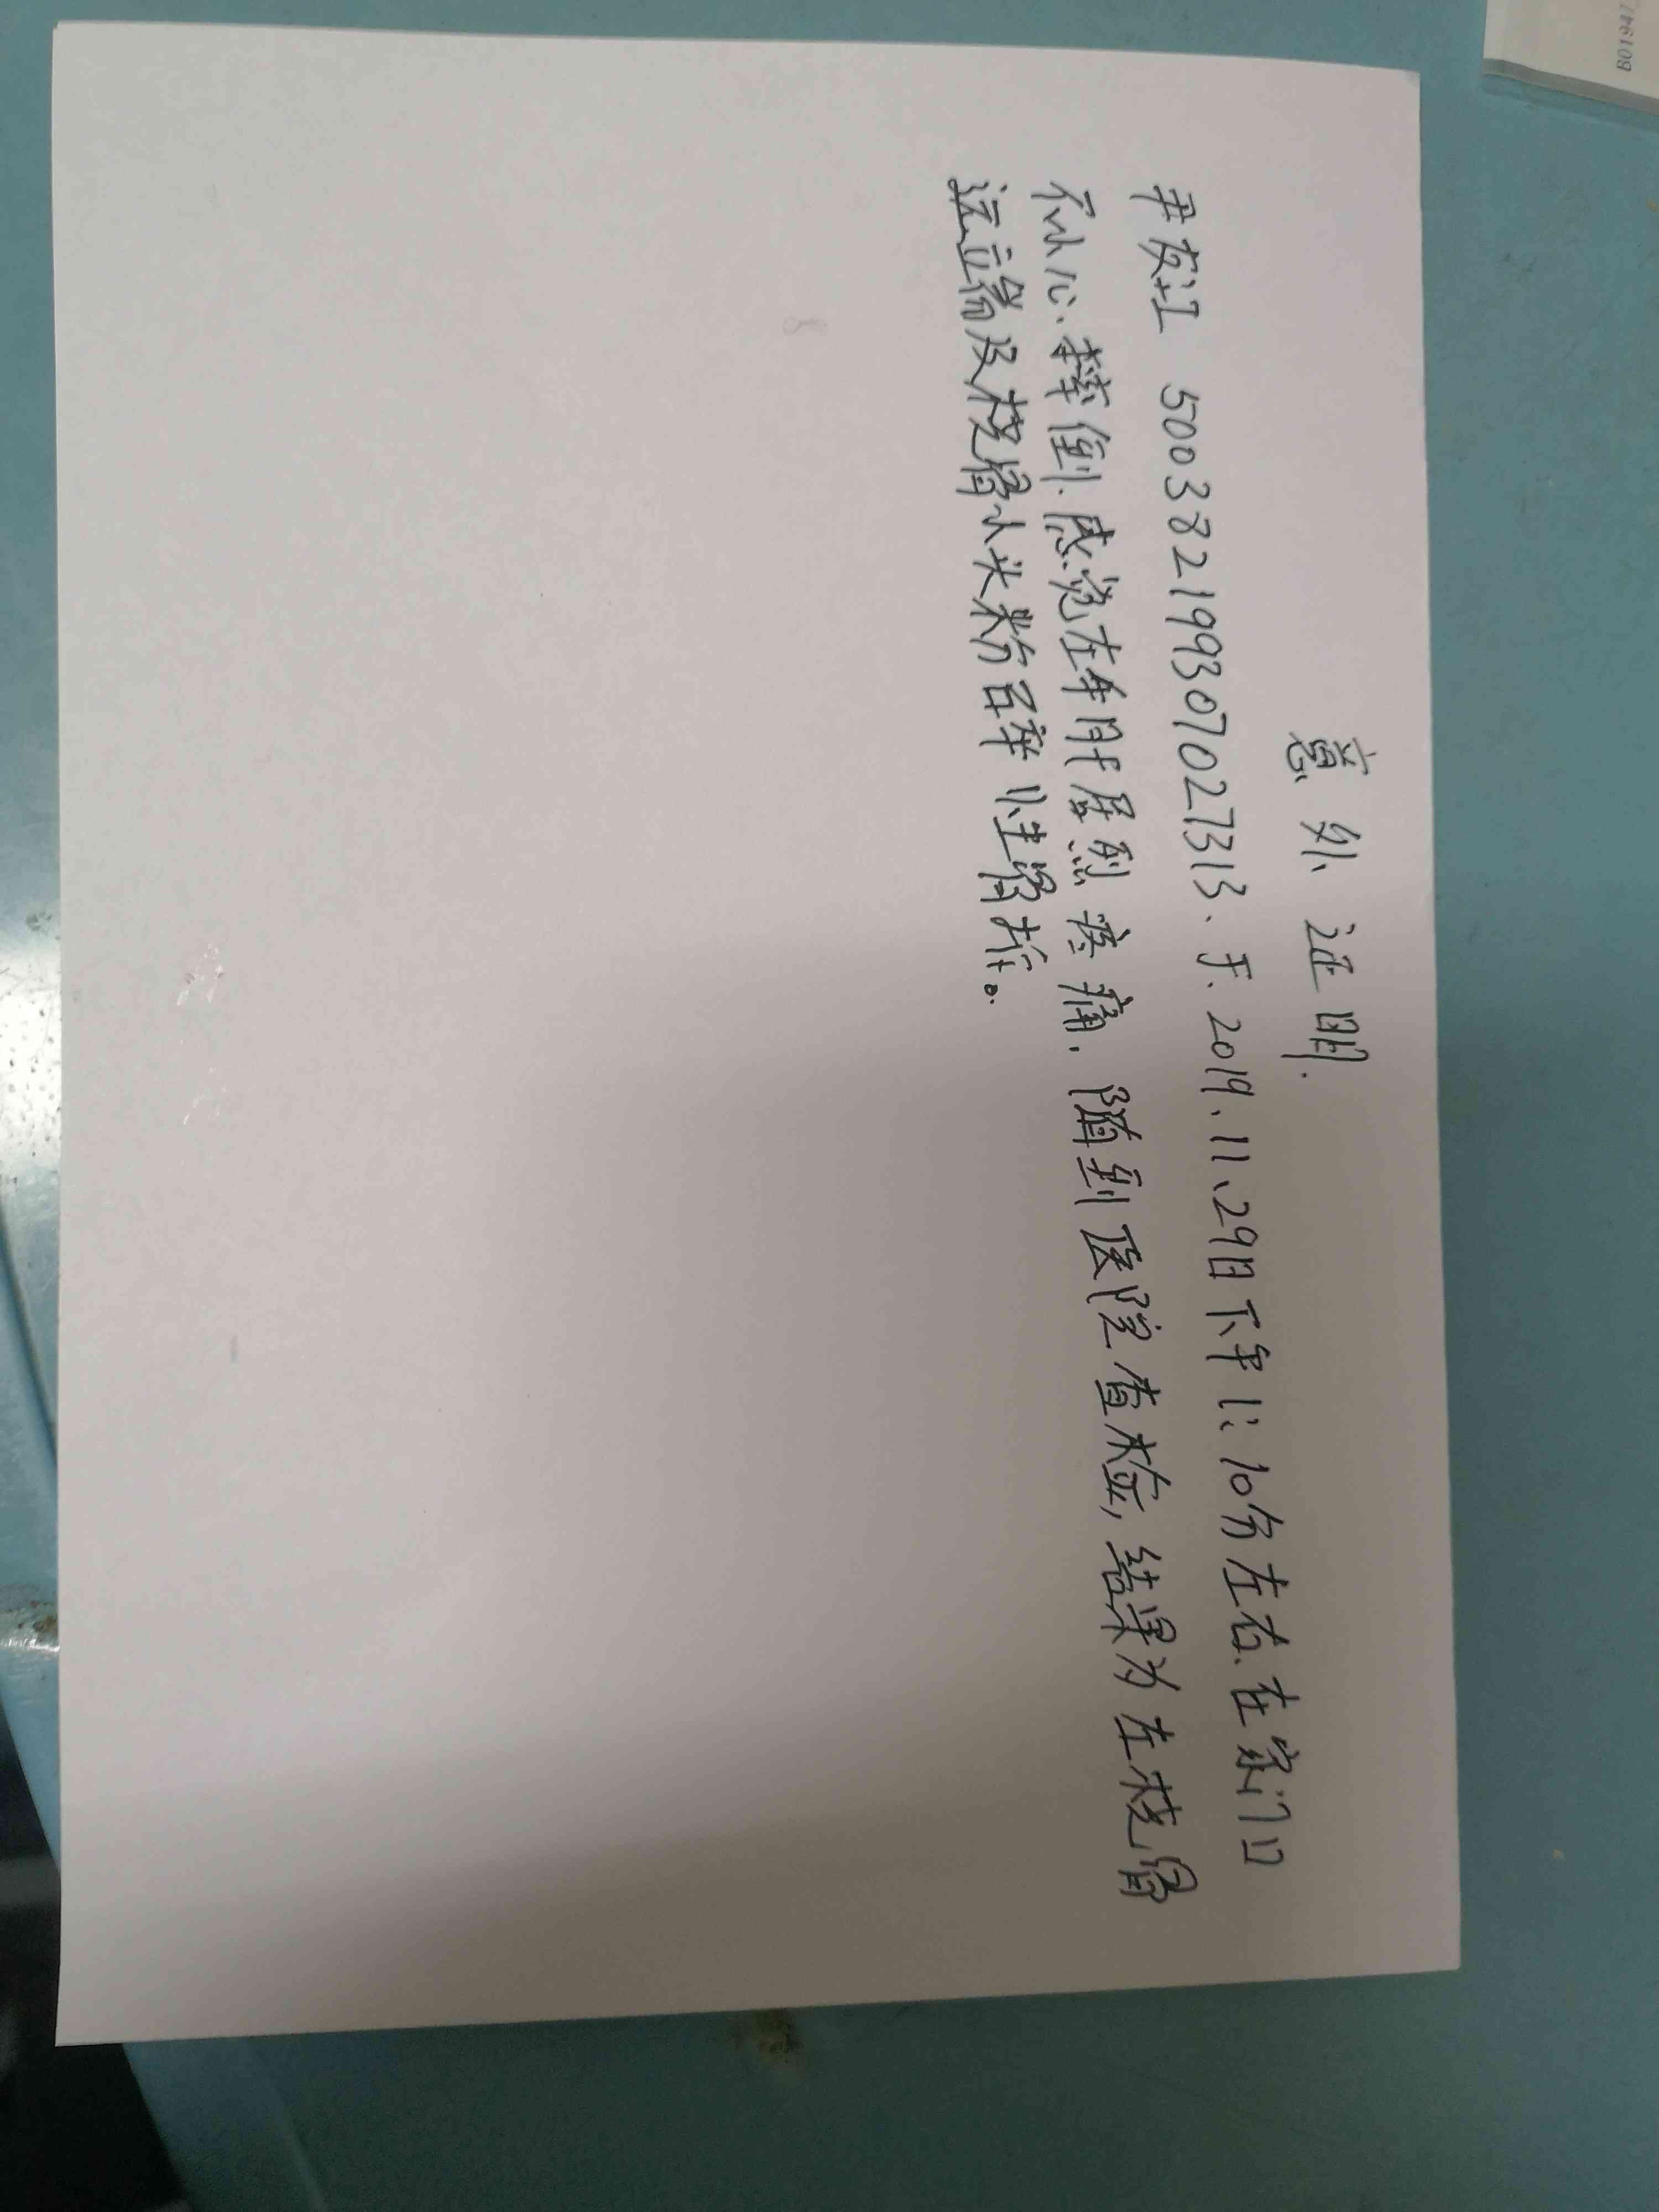 意外证明.
尹友江 500382199307027313、于、2019、11、29日下午1:10分左右、在家门口
不小心、摔倒、感觉左车肘居烈疼痛、随到医院查检，结果为左桡骨
远端及桡骨小头粉碎性骨折。
B01947